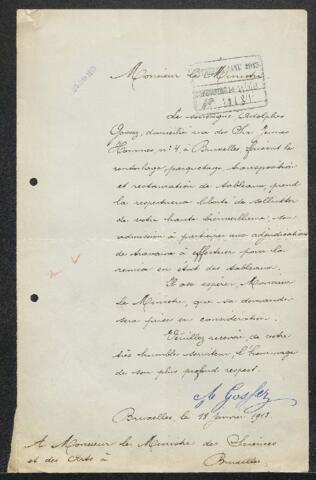 Monsieur le Ministre,
Le soussigné Adolphe
domicilié rue des Six Jeunes
Hommes n° 4 à Bruxelles, faisant le
rentoilage, parquetage, transposition
et restauration de tableaux, prend
la respectueuse liberté de solliciter
de votre haute bienveillance, son
admission à participer aux adjudications
de travaux à effectuer pour la
remise en état des tableaux.
Il ose espérer, Monsieur
le Ministre, que sa demande
sera prise en considération.
Veuillez recevoir de votre
très humble serviteur, l'hommage
de son plus profond respect.
Bruxelles le 18 Janvier 1913
A Monsieur le Ministre des Sciences
et des Arts à Bruxelles.